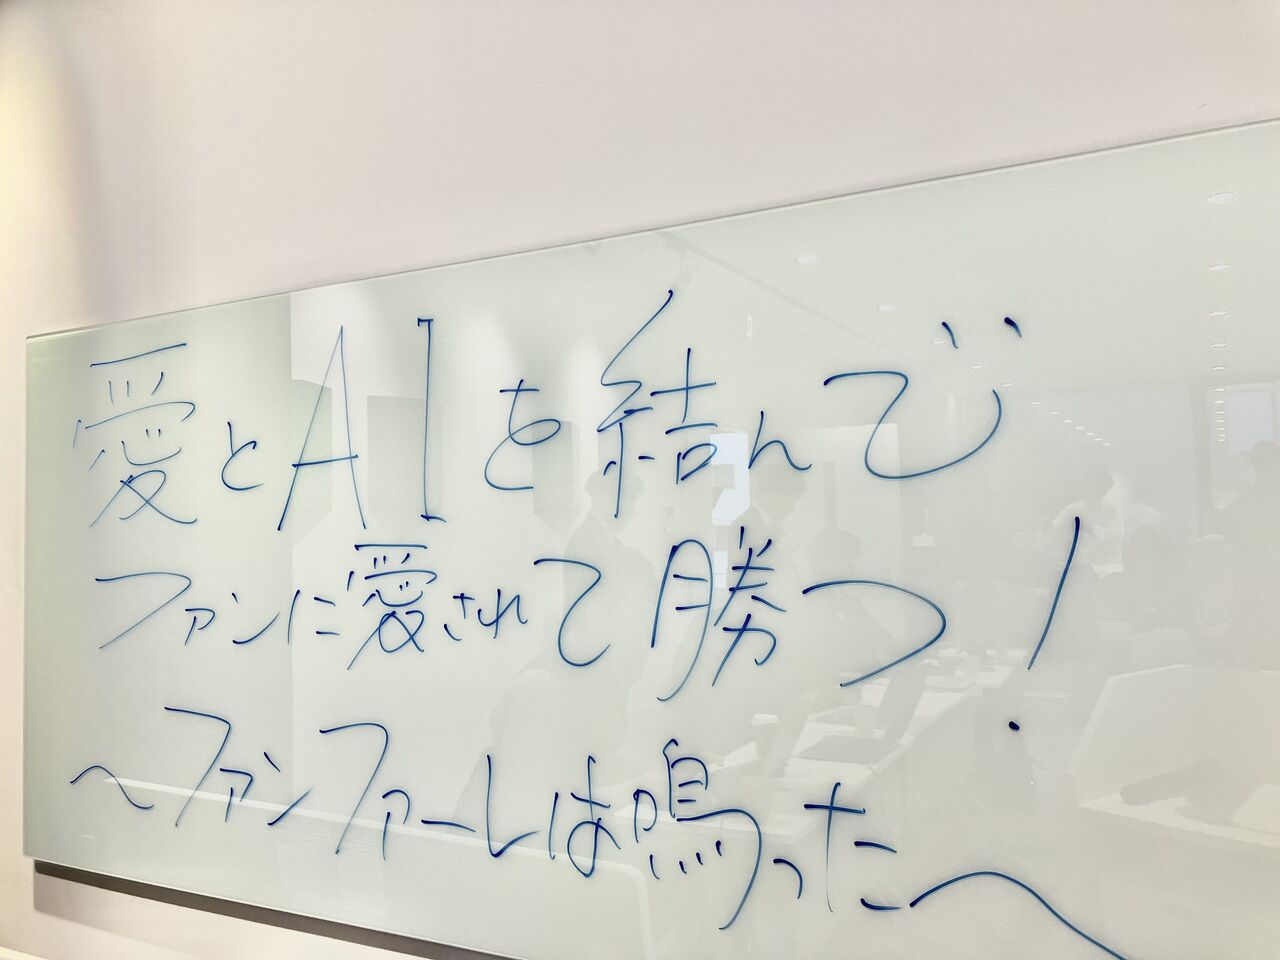 愛とAIを結んで
ファンに愛されて勝つ!
〜ファンファーレは鳴った〜